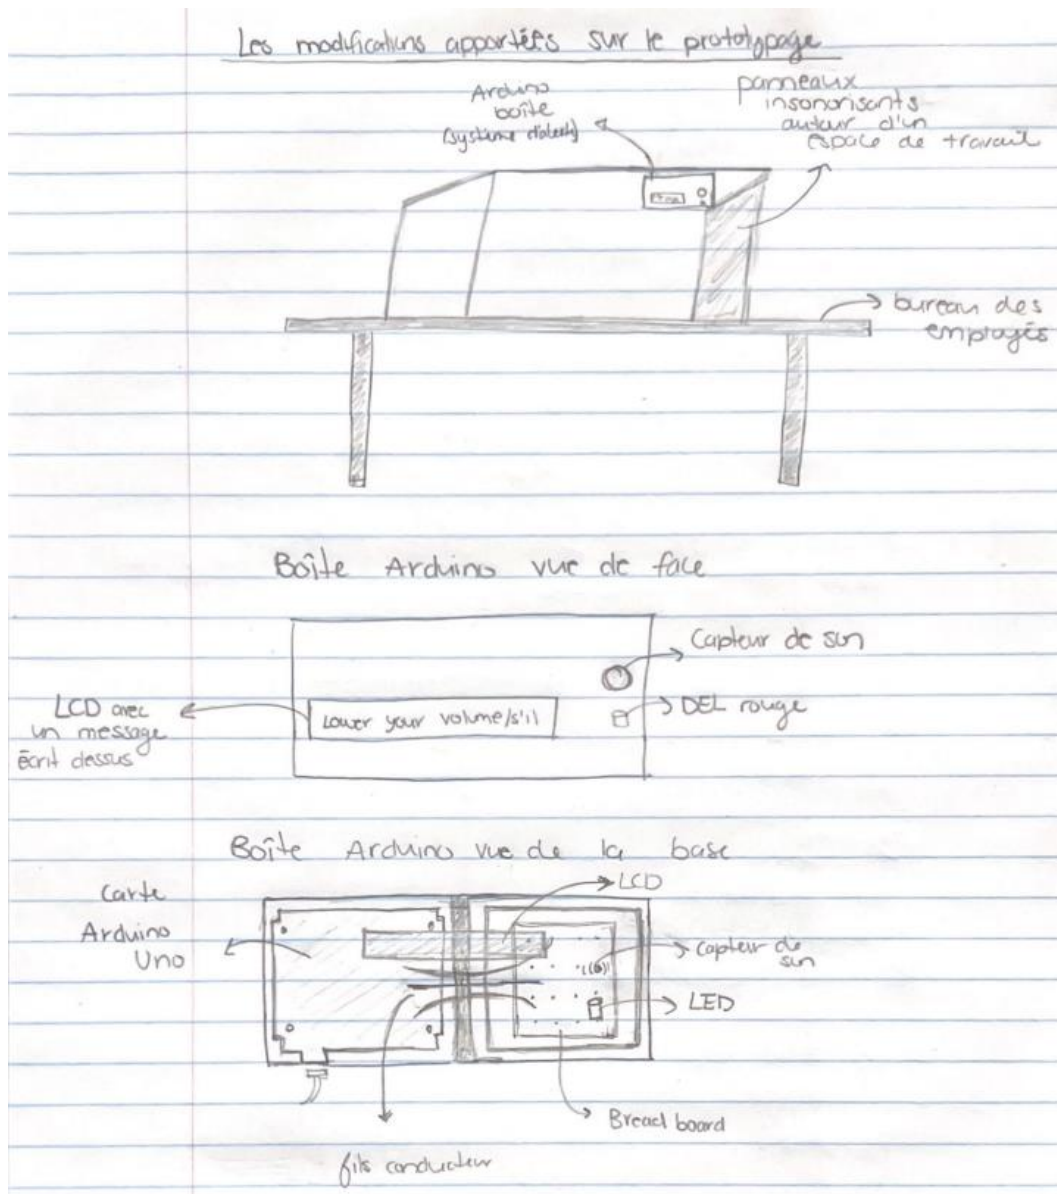 Les modifications apportées sur le prototypage
Arduino
boîte
(système d'alerte)
panneaux
insonorisants
autour d'un
espace de travail
bureau des
employés
Boîte Arduino vue de face
Capteur de son
DEL rouge
LCD avec
un message
écrit dessus
Lower your volume/s'il
Boîte Arduino vue de la base
Carte
Arduino
Uno
LCD
Capteur de
son
LED
Bread board
fils conducteur